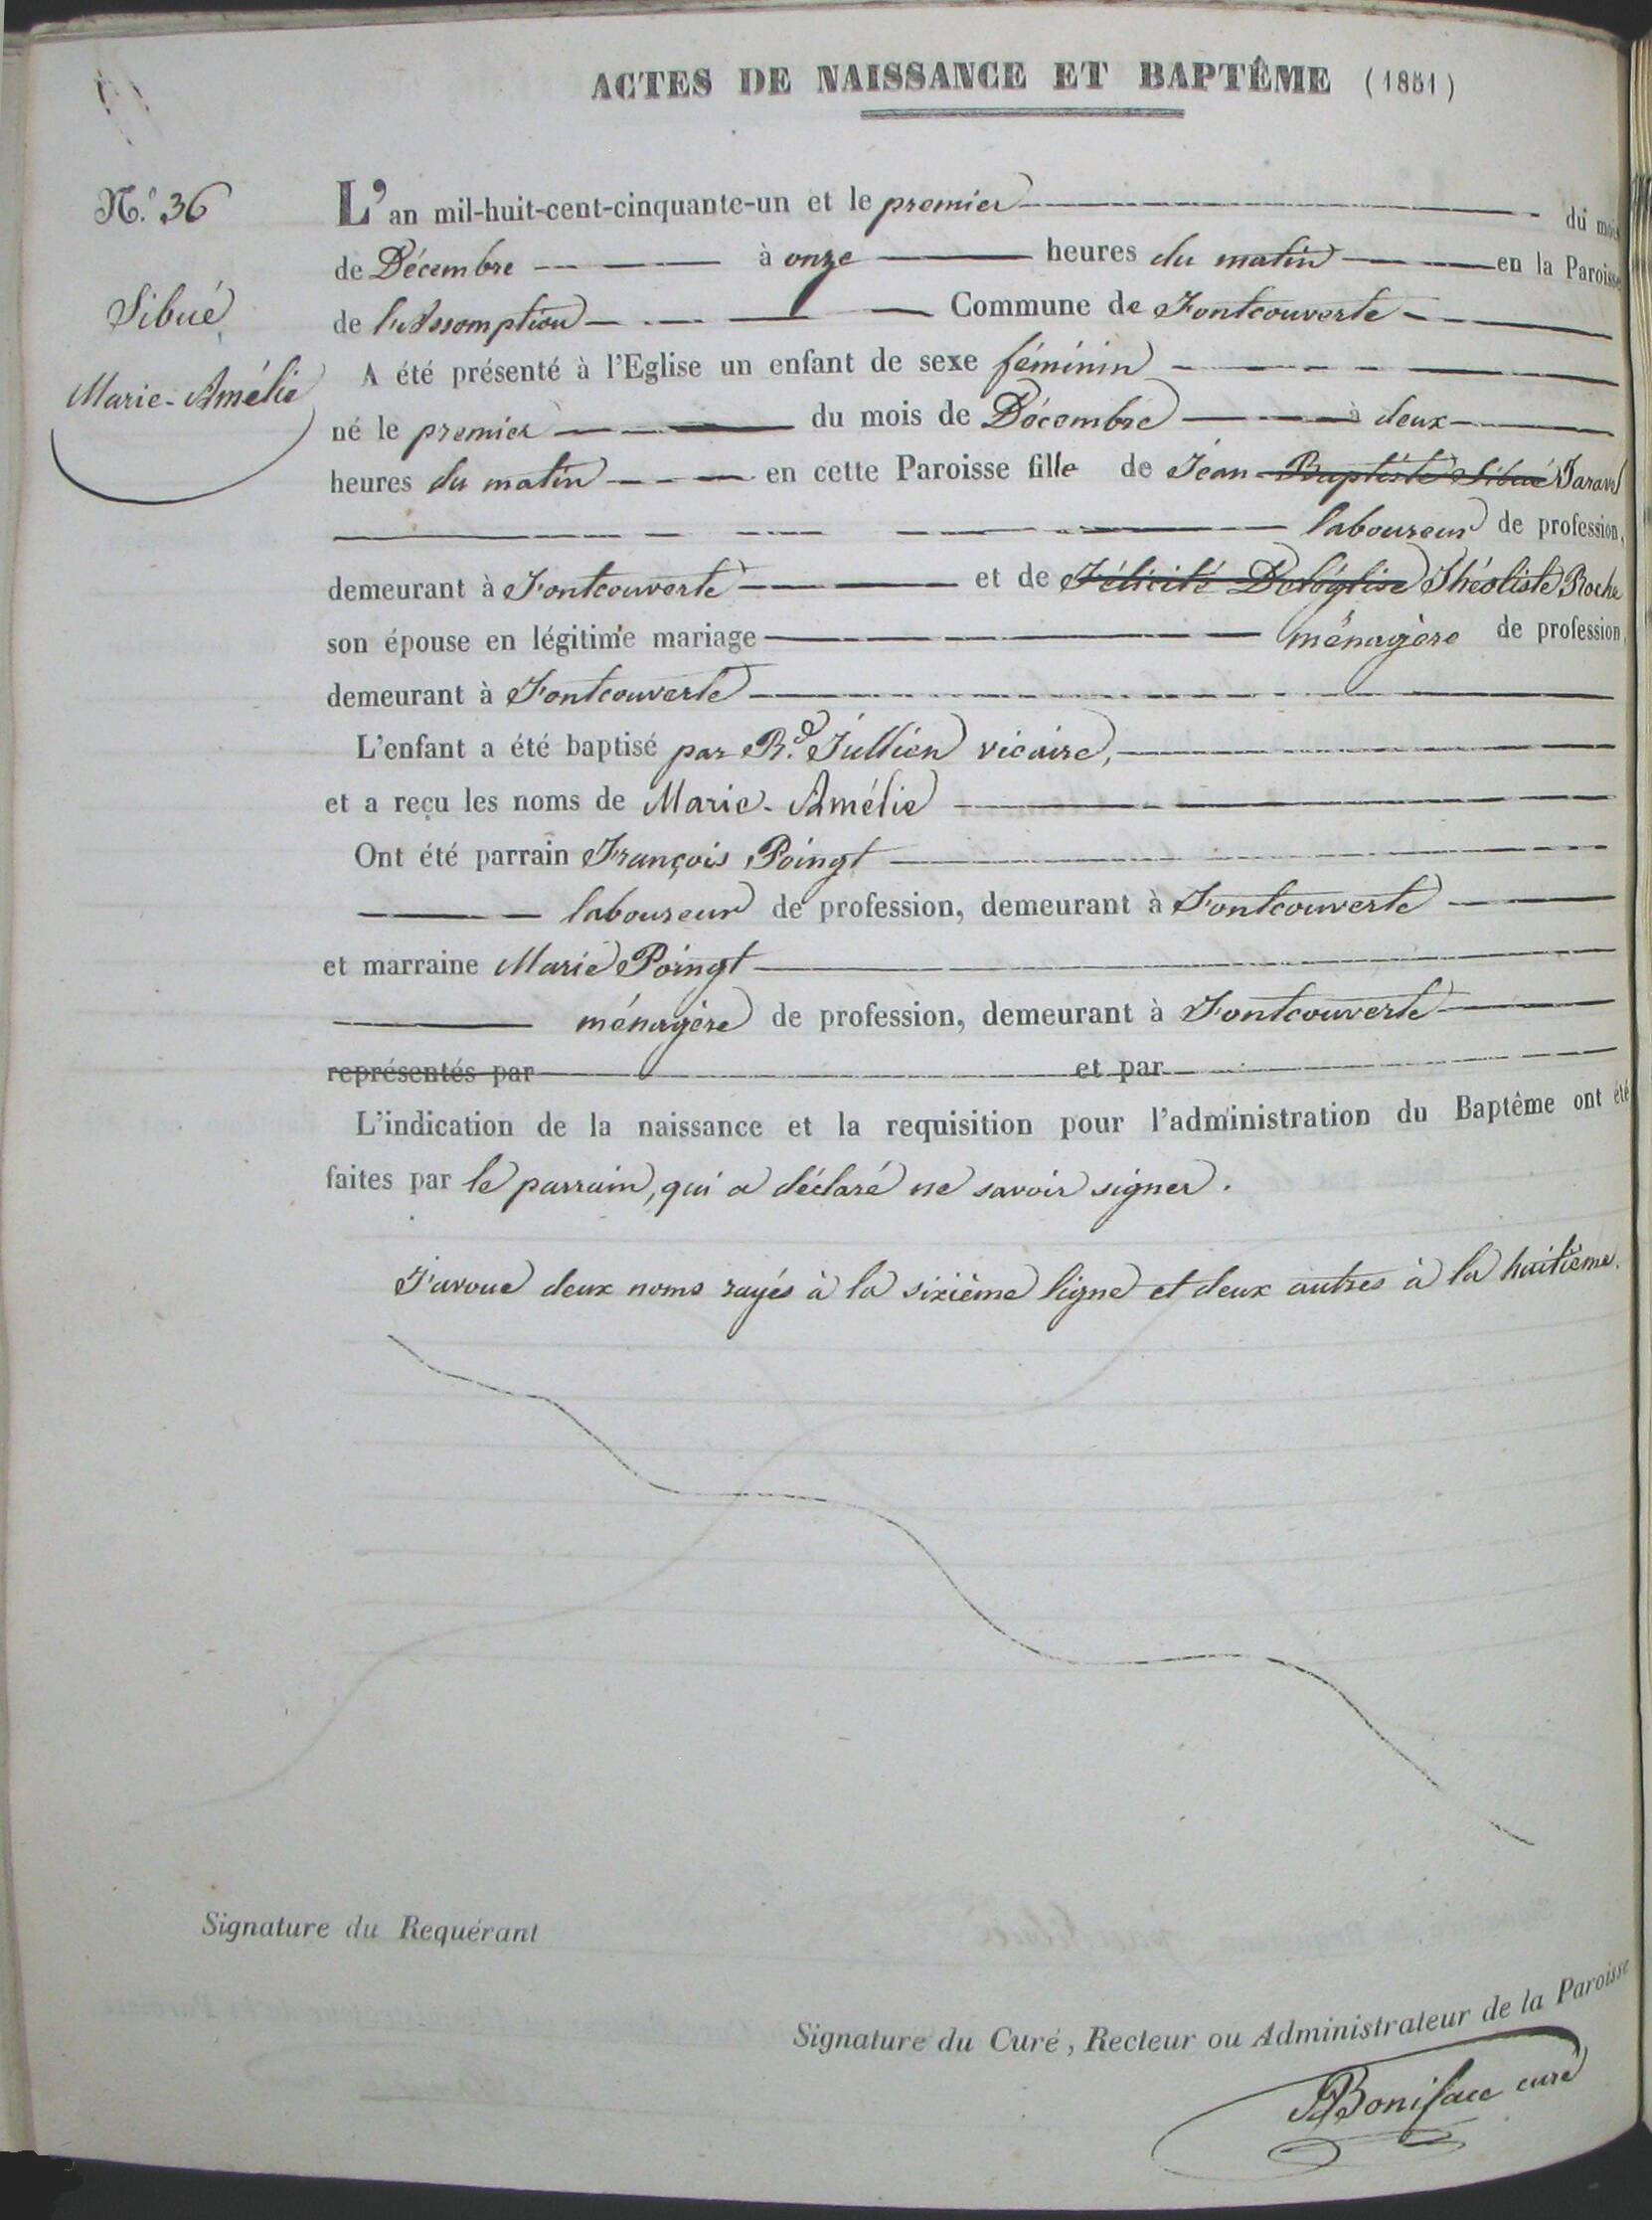 ACTES DE NAISSANCE ET BAPTÊME (1851)
N.° 36
Sibué
Marie-Amélie
L'an mil-huit-cent-cinquante-un et le premier du mois
de Décembre à onze heures du matin en la Paroisse
de l'Assomption Commune de Fontcouverte
A été présenté à l'Eglise un enfant de sexe féminin
né le premier du mois de Décembre à deux
heures du matin en cette Paroisse fille de Jean-Baptiste Sibué
laboureur de profession,
demeurant à Fontcouverte et de Félicité Deléglise Théoliste Roche
son épouse en légitime mariage ménagère de profession,
demeurant à Fontcouverte
L'enfant a été baptisé par R.d Jullien vicaire,
et a reçu les noms de Marie-Amélie
Ont été parrain François Poingt
laboureur de profession, demeurant à Fontcouverte
et marraine Marie Poingt
ménagère de profession, demeurant à Fontcouverte
représentés par et par
L'indication de la naissance et la requisition pour l'administration du Baptême ont été
faites par le parrain, qui a déclaré ne savoir signer.
J'avoue deux noms rayés à la sixième ligne et deux autres à la huitième.
Signature du Requérant
Signature du Curé, Recteur ou Administrateur de la Paroisse
Boniface curé